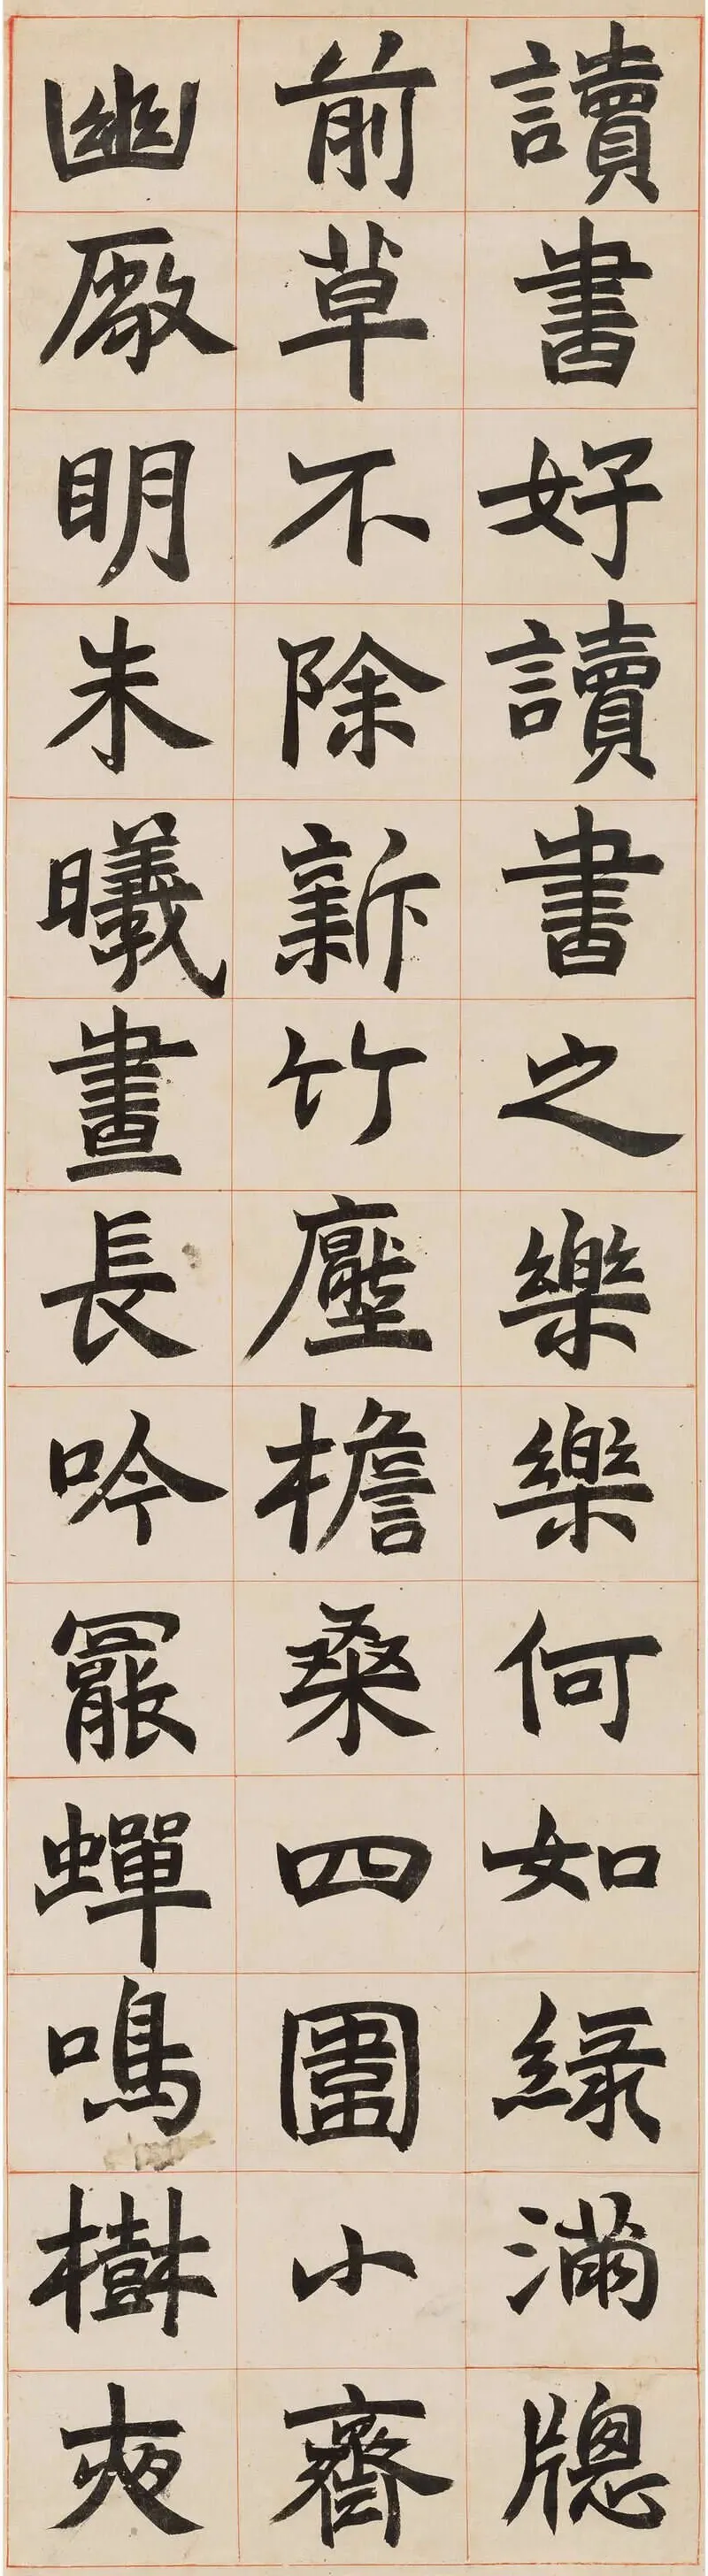 讀書好讀書之樂樂何如綠滿牕
前草不除新竹壓檐桑四圍小齋
幽厰明朱曦晝長吟罷蟬鳴樹夜